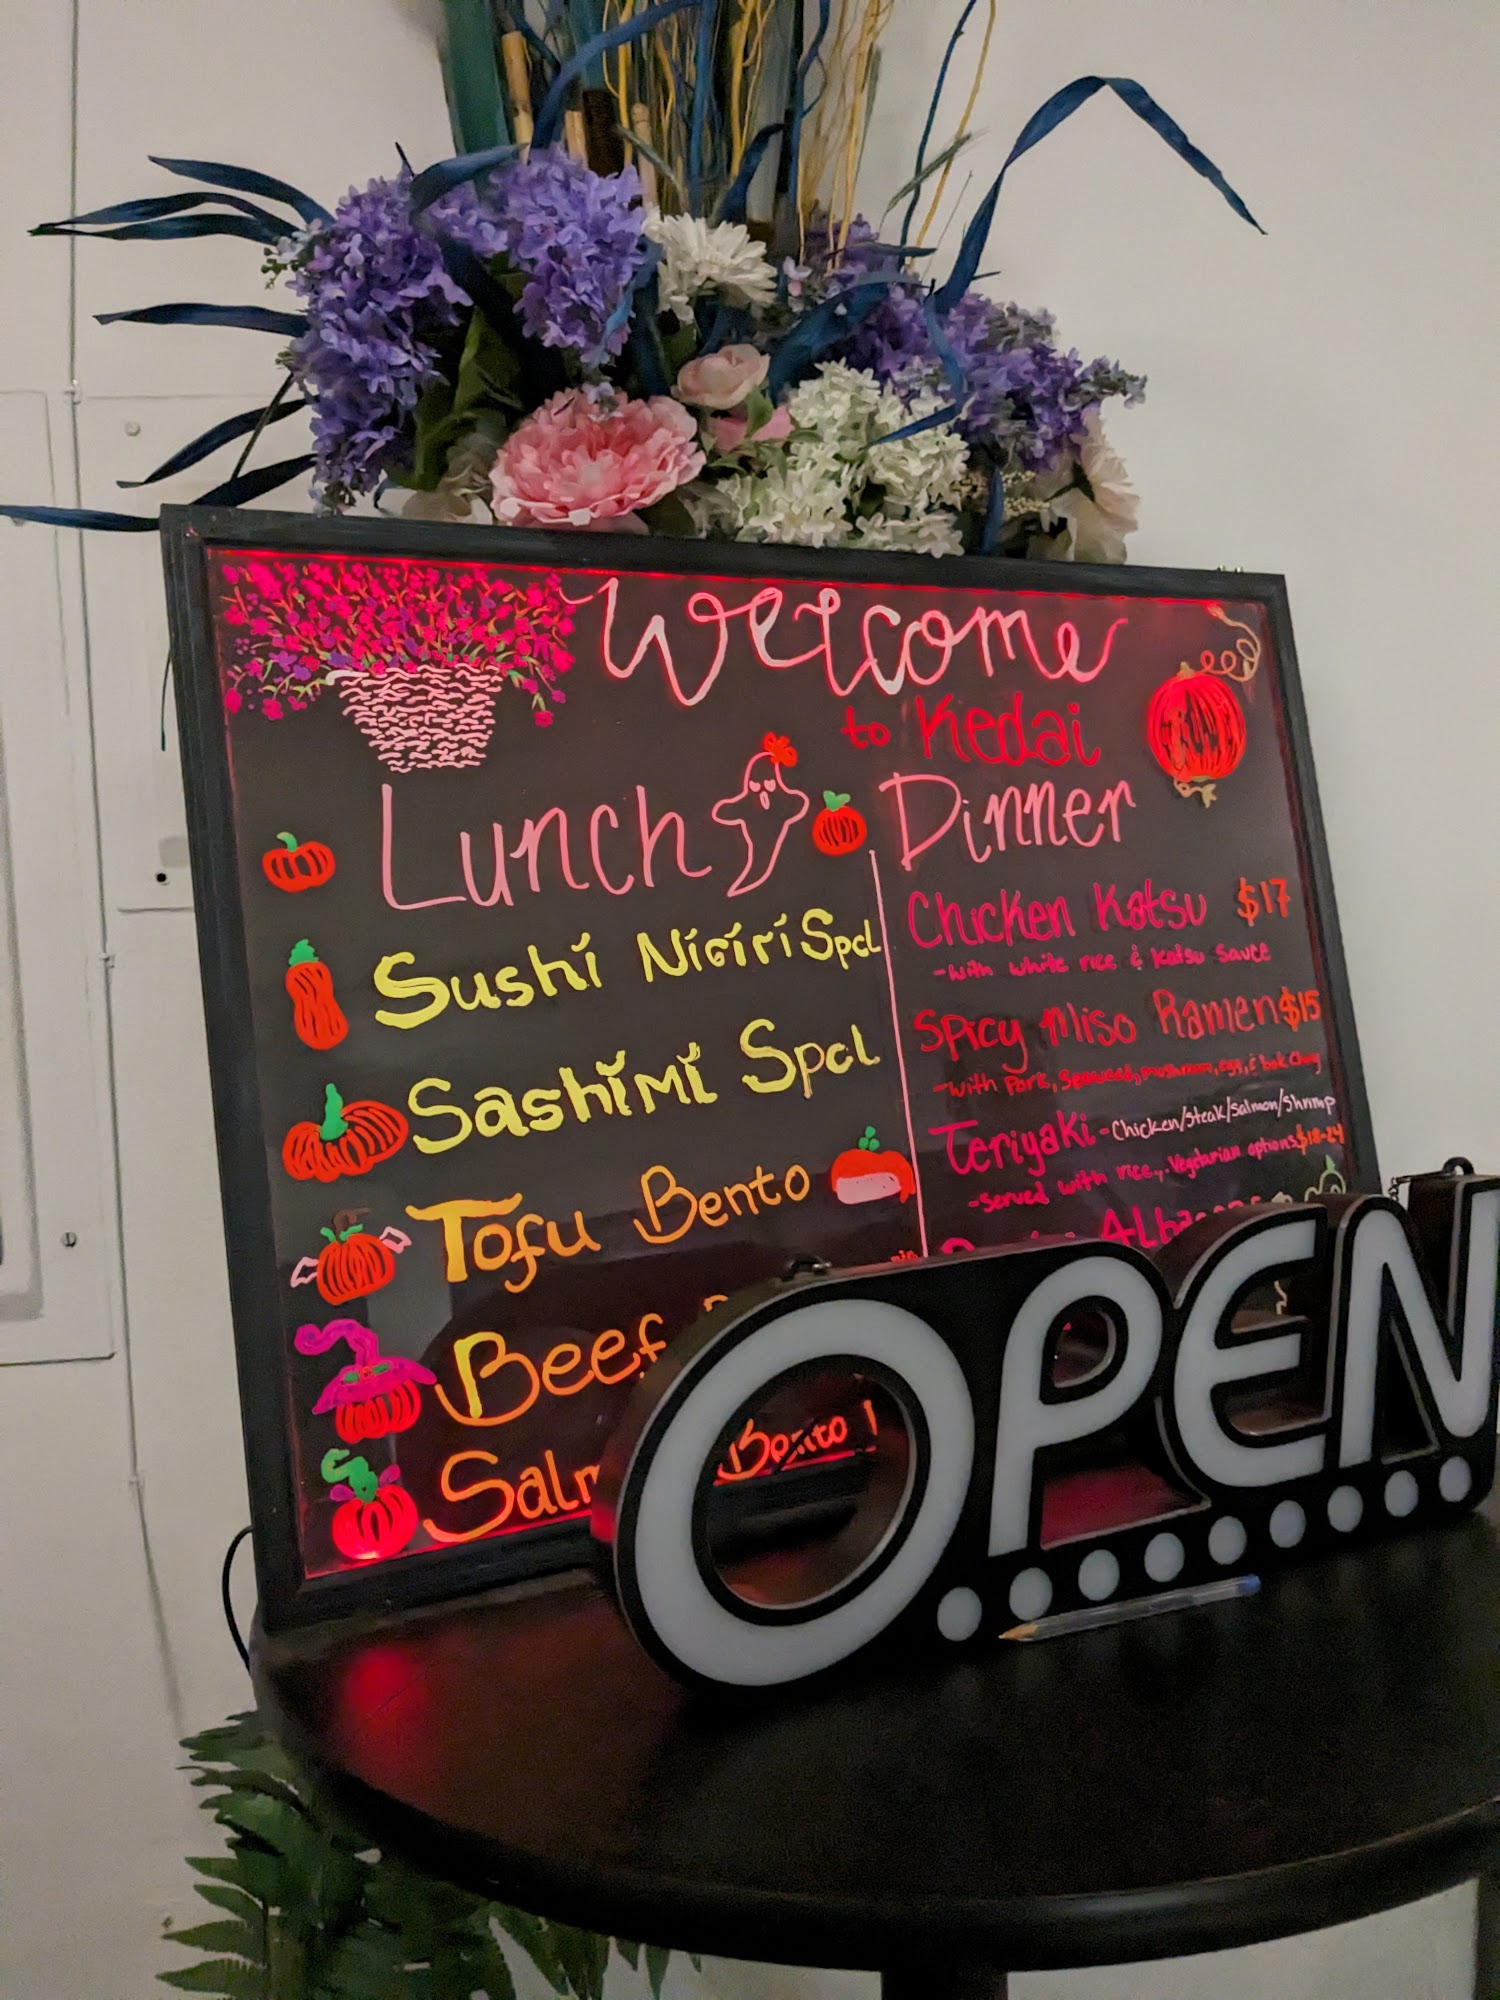 Welcome
to Kedai
Lunch
Sushi Nigiri Spcl
Sashimi Spcl
Tofu Bento
Beef
Bento
Dinner
Chicken Katsu $17
-with white rice & Katsu Sauce
Spicy Miso Ramen $15
-with Pork, Seaweed, mushroom, egg, & bok Choy
Teriyaki - Chicken/Steak/Salmon/Shrimp
-Served with rice, . Vegetarian options $18-24
OPEN